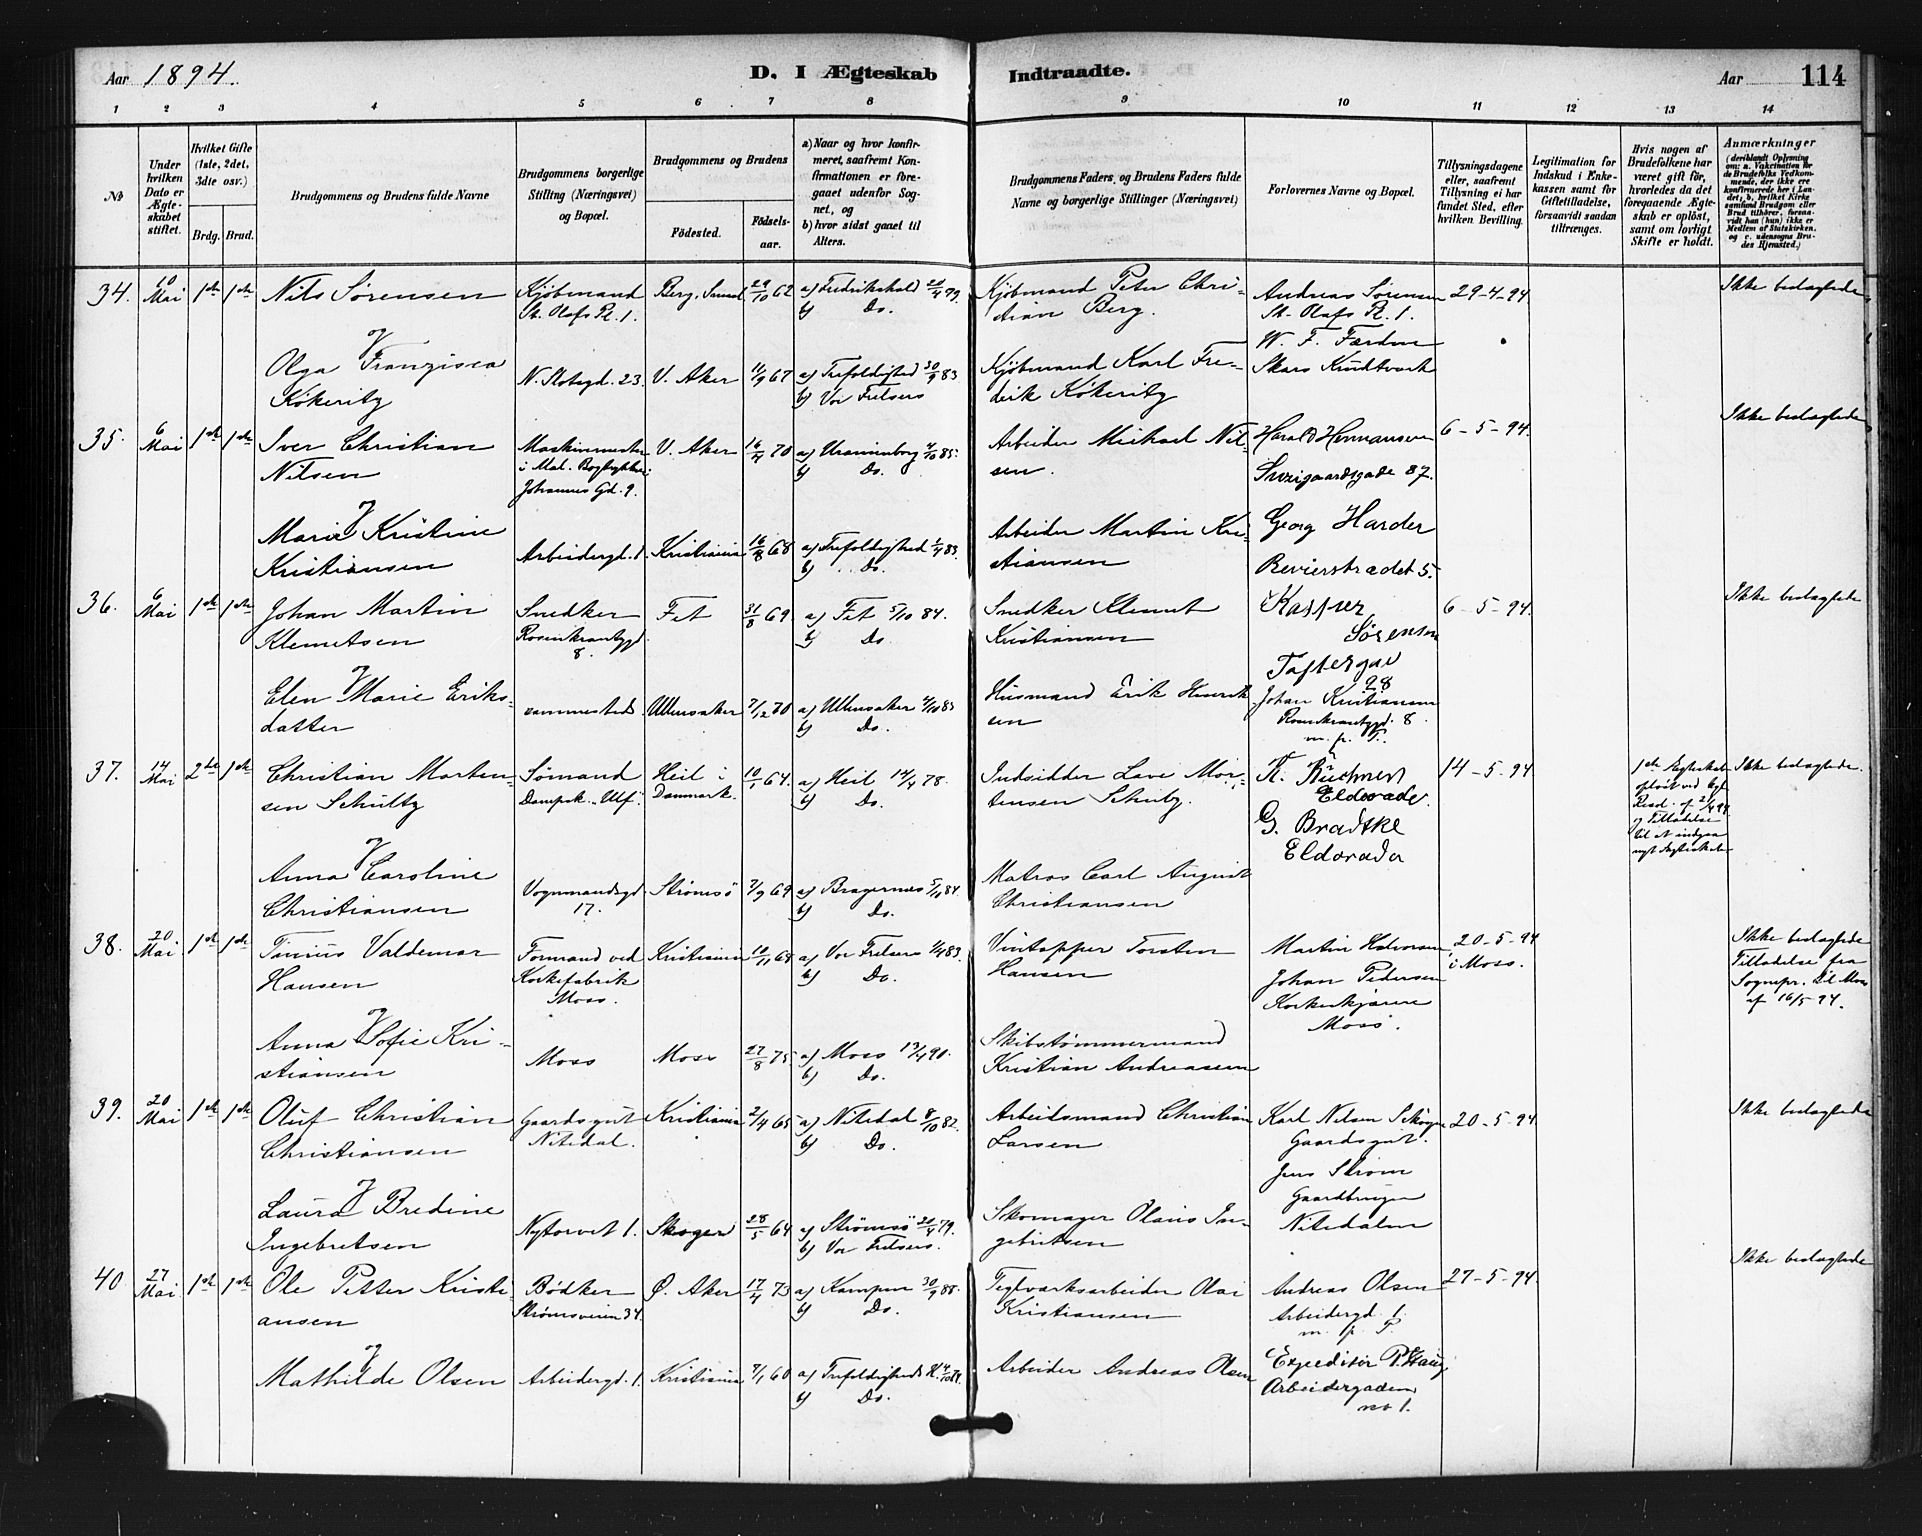 Aar 1894.
D. I Ægteskab Indtraadte.
Aar 114
1 2 3 4 5 6 7 8 9 10 11 12 13 14
No
Under hvilken Dato er Ægteskabet stiftet.
Hvilket Gifte (1ste, 2det, 3die osv.)
Brdg. Brud.
Brudgommens og Brudens fulde Navne
Brudgommens borgerlige Stilling (Næringsvei) og Bopæl.
Brudgommens og Brudens
Fødested. Fødsels-aar.
a) Naar og hvor konfirmeret, saafremt Konfirmationen er foregaaet udenfor Sognet, og
b) hvor sidst gaaet til Alters.
Brudgommens Faders, og Brudens Faders fulde Navne og borgerlige Stillinger (Næringsvei)
Forlovernes Navne og Bopæl.
Tillysningsdagene eller, saafremt Tillysning ei har fundet Sted, efter hvilken Bevilling.
Legitimation for Indskud i Enkekassen samt for Giftetilladelse, forsaavidt saadan tiltrænges.
Hvis nogen af Brudefolkene har været gift før, hvorledes da det foregaaende Ægteskab er opløst, samt om lovligt Skifte er holdt.
Anmærkninger
(deriblandt Oplysning om: a. Vakcination for de Brudefolks Vedkommende, der ikke ere konfirmerede her i Landet; b. hvilket Kirkesamfund Brudgom eller Brud tilhører, forsaavidt han (hun) ikke er Medlem af Statskirken, og c. udensogns Brudes Hjemsted.)
34. 10 Mai 1ste 1ste Nils Sørensen Kjøbmand St. Olafs Pl. 1. Berg, Smaal 29/10 62 a) Fredrikshald 20/4 79. b) Do. Kjøbmand Peter Christian Berg. Andreas Sørensen St. Olafs Pl. 1. 29-4-94. Ikke beslægtede
og
Olga Franzisca Kökeritz N. Slotsgd. 23. V. Aker 11/9 67 a) Trefoldighed 30/9 83 b) Vor Frelsers Kjøbmand Karl Fredrik Kökeritz W. F. Færden Skars Kundtværk
35. 6 Mai 1ste 1ste Iver Christian Nilsen Maskinmester i Mal. Bogtykkeri Johannes Gd. 9. V. Aker 16/4 70 a) Uranienborg 4/10 85. b) Do. Arbeider Michael Nilsen. Harald Hermansen Sveigaardsgade 87. 6-5-94. Ikke beslægtede
og
Marie Kristine Kristiansen Arbeidergd. 1 Kristiania 16/8 68 a) Trefoldighed 1/4 83. b) Do. Arbeider Martin Kristiansen Georg Harder Revierstrædet 5.
36. 6 Mai 1ste 1ste Johan Martin Klemetsen Snedker Rosenkrantzgd. 8. Fet 31/8 69. a) Fet 5/10 84. b) Do Snedker Klemet Kristiansen Kasper Sørensen Toftesgade 28 6-5-94. Ikke beslægtede
og
Elen Marie Eriksdatter sammesteds Ullensaker 7/12 70 a) Ullensaker 4/10 85 b) Do. Husmand Erik Henriksen Johan Kristiansen Rosenkrantzgd. 8. m. p. P.
37. 14 Mai 2det 1ste Christian Mortensen Schultz Sømand Dampsk. „Ulf“. Heil i Danmark. 10/1 64. a) Heil 14/4 78. b) Do. Indsidder Lave Mortensen Schutz. Fr. Büchner Eldorado. 14-5-94 1ste Ægteskab opløst ved kgl. Resol. af 2/4 94 og Tilladelse til at indgaa nyt Ægteskab Ikke beslægtede.
og
Anna Caroline Christiansen Vognmandsgd. 17. Strømsø 7/9 69 a) Bragernæs 5/10 84. b) Do. Matros Carl August Christiansen G. Bradtke Eldorado
38. 20 Mai 1ste 1ste Tinius Valdemar Hansen Formand ved Korkefabrik Moss. Kristiania 10/11 68 a) Vor Frelsers 1/4 83. b) Do. Vintapper Torsten Hansen Martin Halvorsen Johan Pedersen Korkeskjærere Moss. 20-5-94 i Moss. Ikke beslægtede Tilladelse fra Sognepr. til Moss af 16/5 94.
og
Anna Sofie Kristiansen Moss Moss 27/8 75 a) Moss 13/4 90. b) Do. Skibstømmermand Kristian Andreassen
39. 20 Mai 1ste 1ste Oluf Christian Christiansen Gaardsgut Nitedal. Kristiania 2/4 65 a) Nitedal 8/10 82. b) Do. Arbeidsmand Christian Larsen Karl Nilsen Skøyen Gaardsgut. 20-5-94. Ikke beslægtede
og
Laura Bredine Ingebretsen Nytorvet 1. Skoger 28/5 64 a) Strømsø 20/4 79. b) Vor Frelsers. Skomager Olaus Ingebritsen Jens Strøm Gaardbruger Nitedalen
40. 27 Mai 1ste 1ste Ole Petter Kristiansen Bødker Strømsveien 34 Ø. Aker 17/4 73 a) Kampen 30/9 88. b) Do. Teglværksarbeider Olai Kristiansen Andreas Olsen Arbeidergd. 1. m. p. P. 27-5-94. Ikke beslægtede
og
Mathilde Olsen Arbeidergd. 1. Kristiania 7/1 60 a) Trefoldigheds K. b) Do. Arbeider Andreas Olsen Expeditør P. Haug Arbeidergaden no 1.